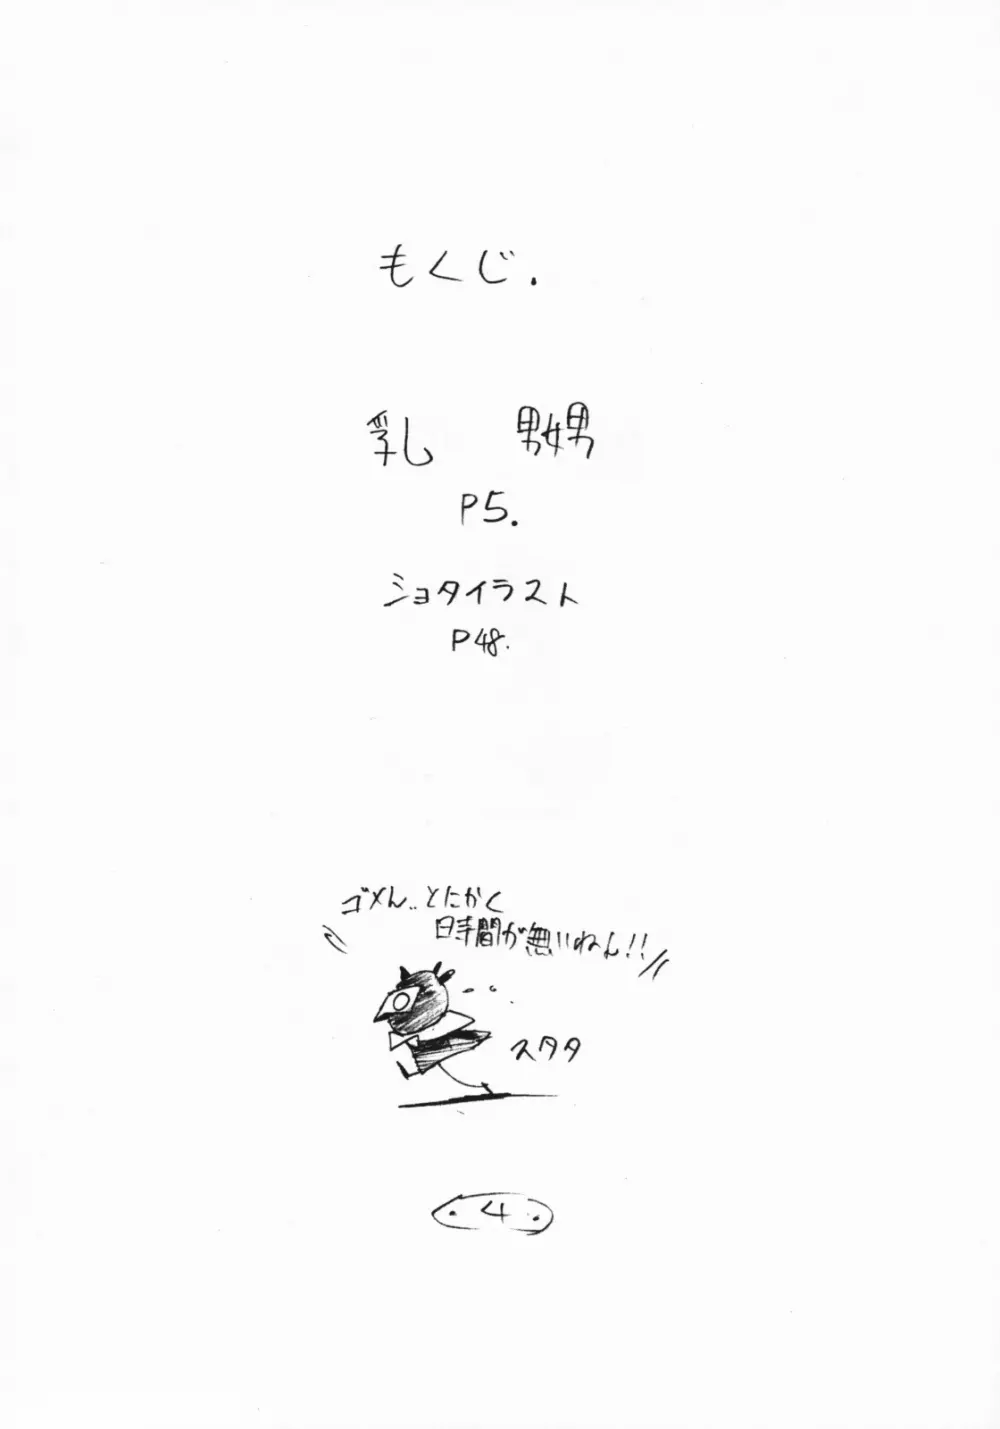 もくじ.
乳 嬲
P5.
ショタイラスト
P48.
ゴメん..とにかく
時間が無いねん!!
スタタ
4